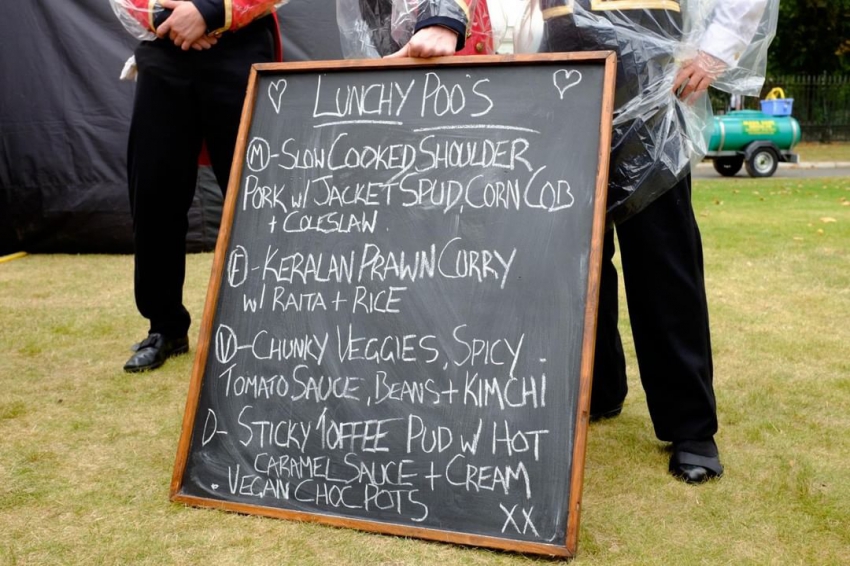 LUNCHY POO'S
M - SLOW COOKED SHOULDER
PORK w/ JACKET SPUD, CORN COB
+ COLESLAW
F - KERALAN PRAWN CURRY
w/ RAITA + RICE
V - CHUNKY VEGGIES, SPICY
TOMATO SAUCE, BEANS + KIMCHI
D - STICKY TOFFEE PUD w/ HOT
CARAMEL SAUCE + CREAM
. VEGAN CHOC POTS
XX